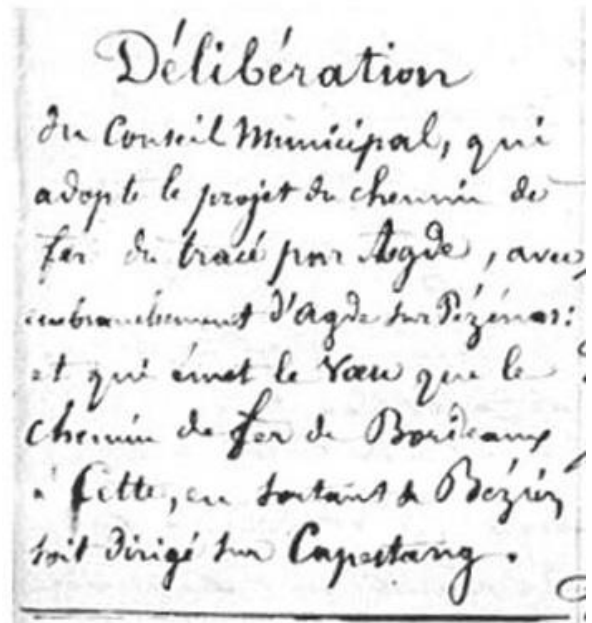 Délibération
du Conseil Municipal, qui
adopte le projet du chemin de
fer du tracé par Agde, avec
embranchement d'Agde sur Pézénas:
et qui émet le Vœu que le
chemin de fer de Bordeaux
à Cette, en sortant de Béziers
soit dirigé sur Capestang.